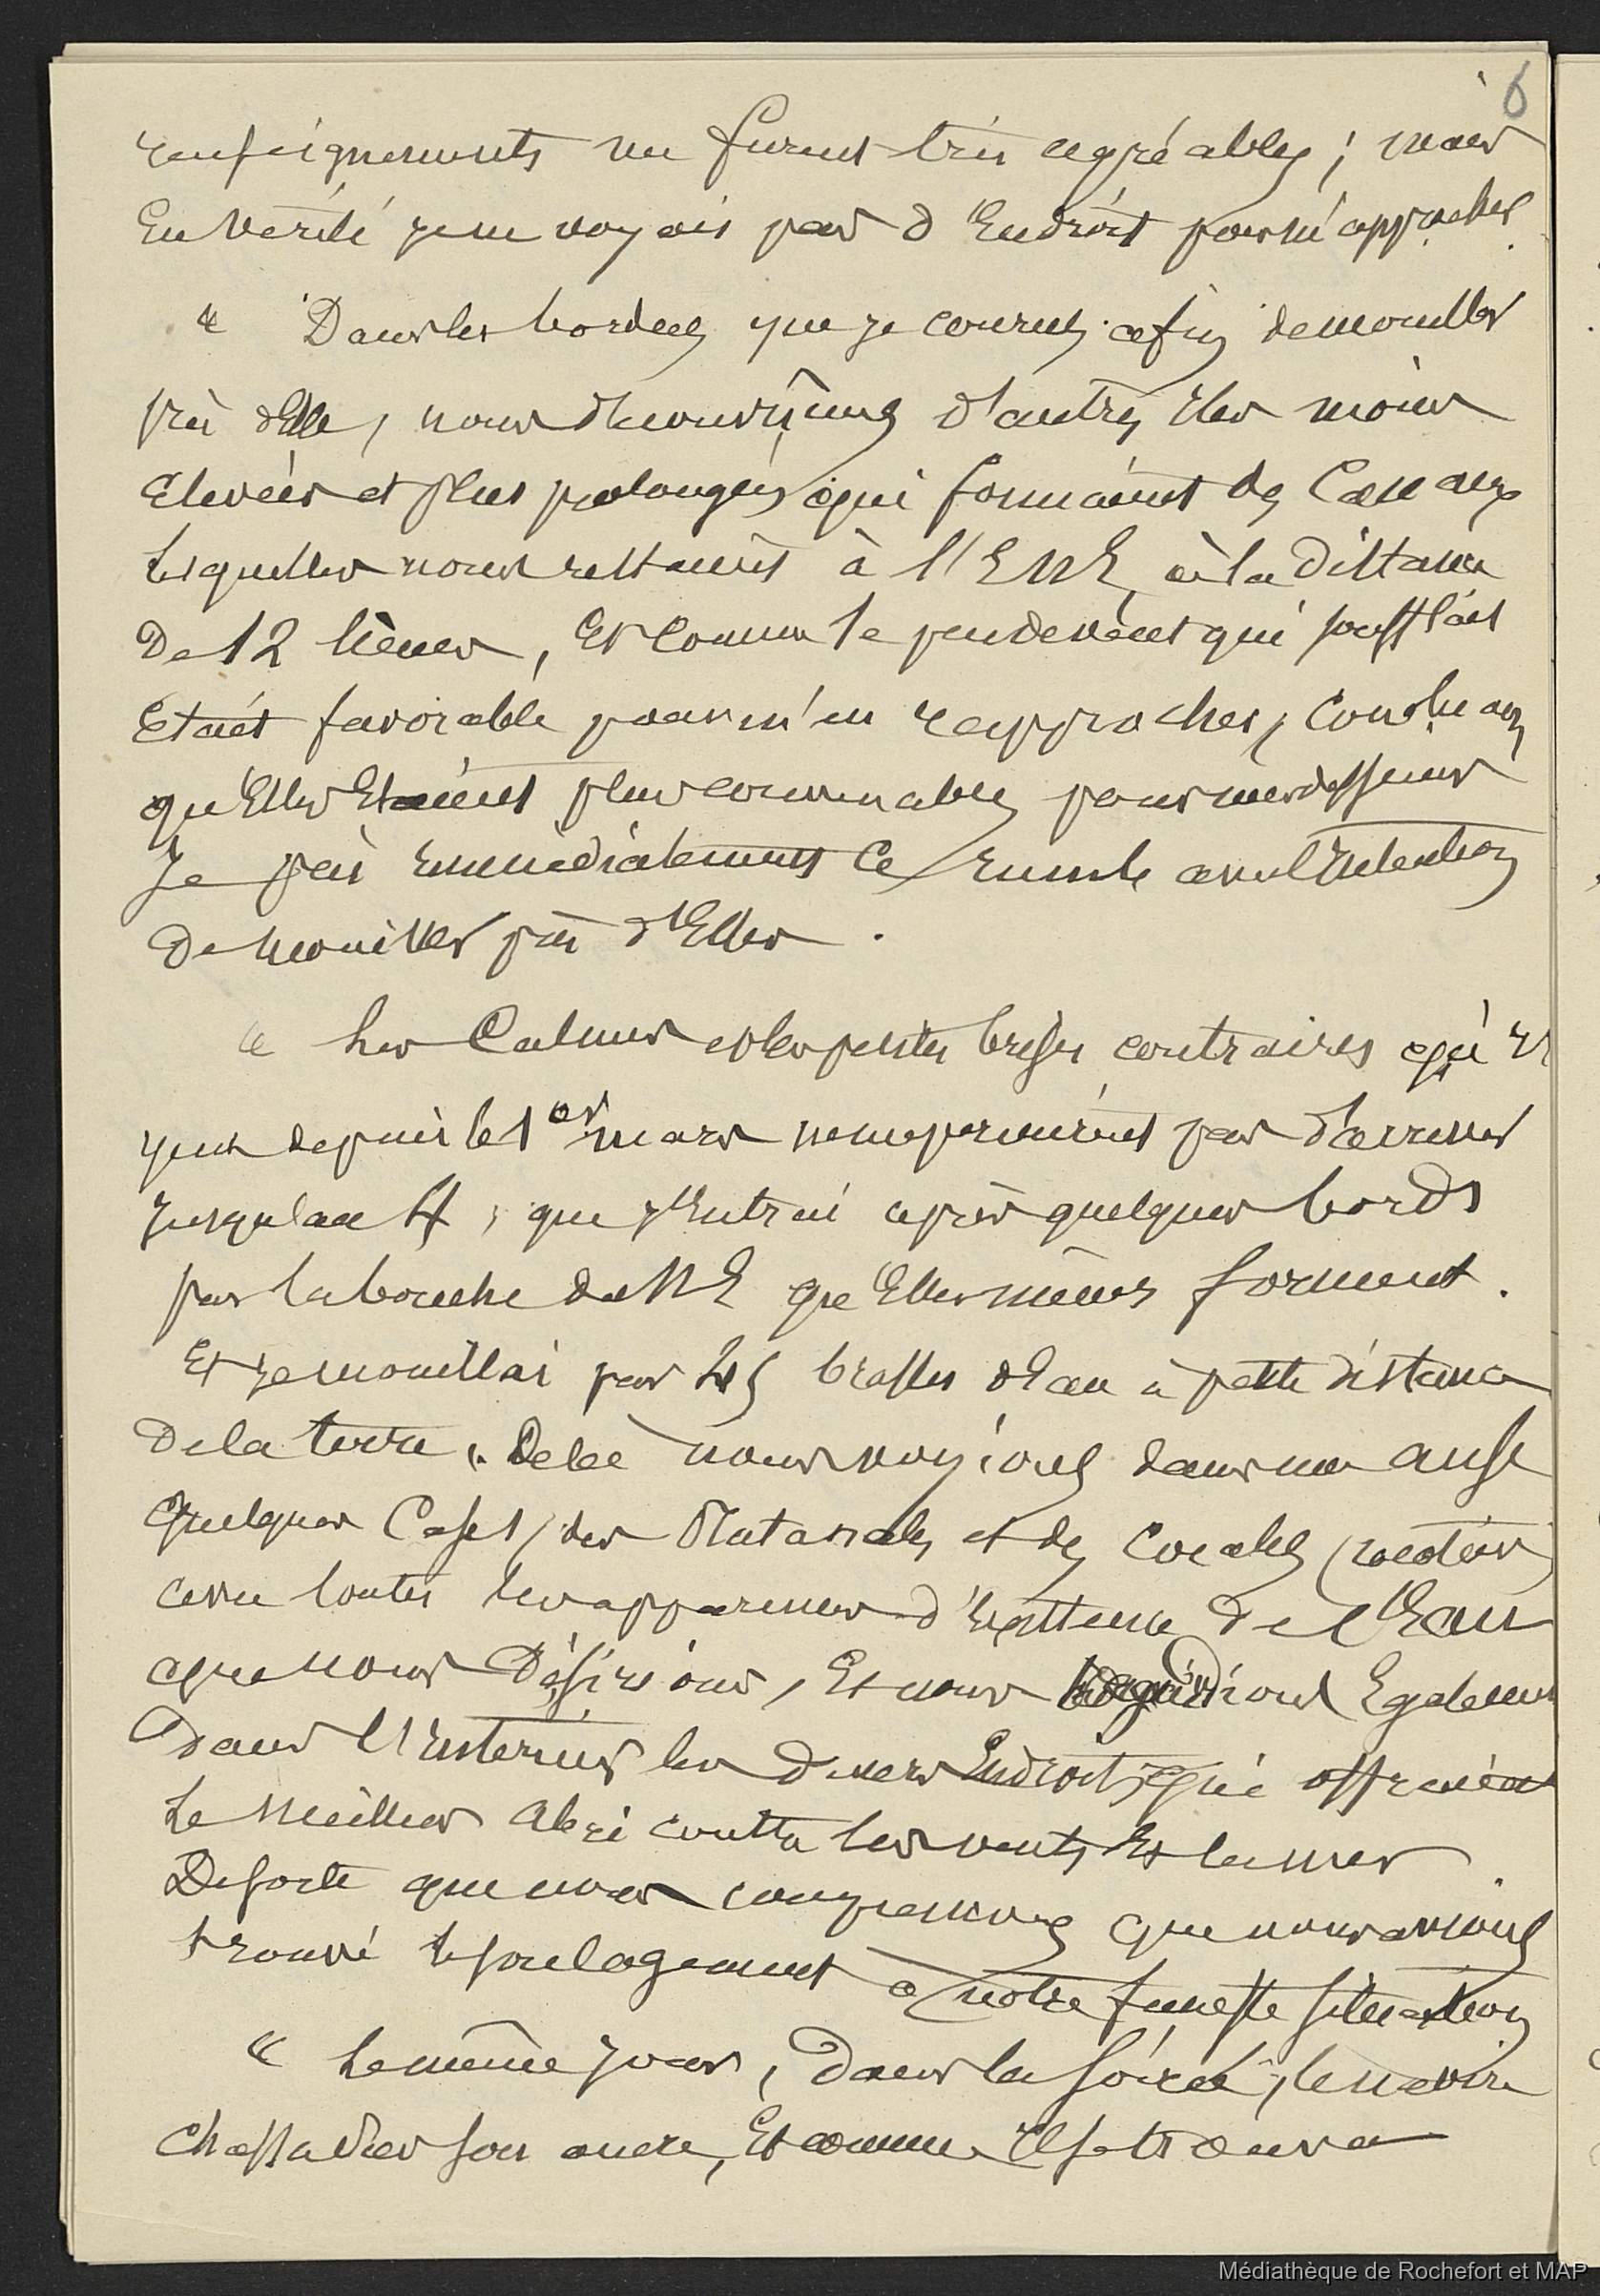 6
renseignements me furent très agréables ; mais
En vérité je ne voyais pas d'Endroit pour m'approcher.
" Dans les bordees que je courus afin de mouiller
près d'Elle, nous decouvrîmes d'autres Iles moins
Elevées et plus prolongées qui formaient des Canaux
Lesquelles nous restaient à l'ENE, à la distance
De 12 lieues, Et comme le peu de vent qui soufflait
Etait favorable pour m'en rapprocher,
qu'Elles Etaient plus convenables pour mes desseins
Je pris immédiatement ce rumb avec l'Intention
De mouiller près d'Elles.
" Les Calmes et les petites brises contraires qui
depuis le 1er mars ne me permirent pas d'arriver
jusqu'au 4, que j'Entrai après quelques bords
par la bouche du NE qu'Elles mêmes forment.
Et je mouillai par 45 brasses d'Eau à petite distance
De la terre. De là nous voyions dans une anse
Quelques Cases, des Platanals et des Cocals,
avec toutes les apparences d'Existence de l'Eau
que nous désirions, Et nous Egalement
Dans l'Interieur les divers Endroits qui offraient
Le Meilleur Abri contre les vents Et la mer.
De sorte que nous comprenions que nous avions
trouvé le soulagement à notre funeste situation
" Le même jour, Dans la soirée, le navire
Chassa sur son ancre, Et comme Il se trouva
Médiathèque de Rochefort et MAP